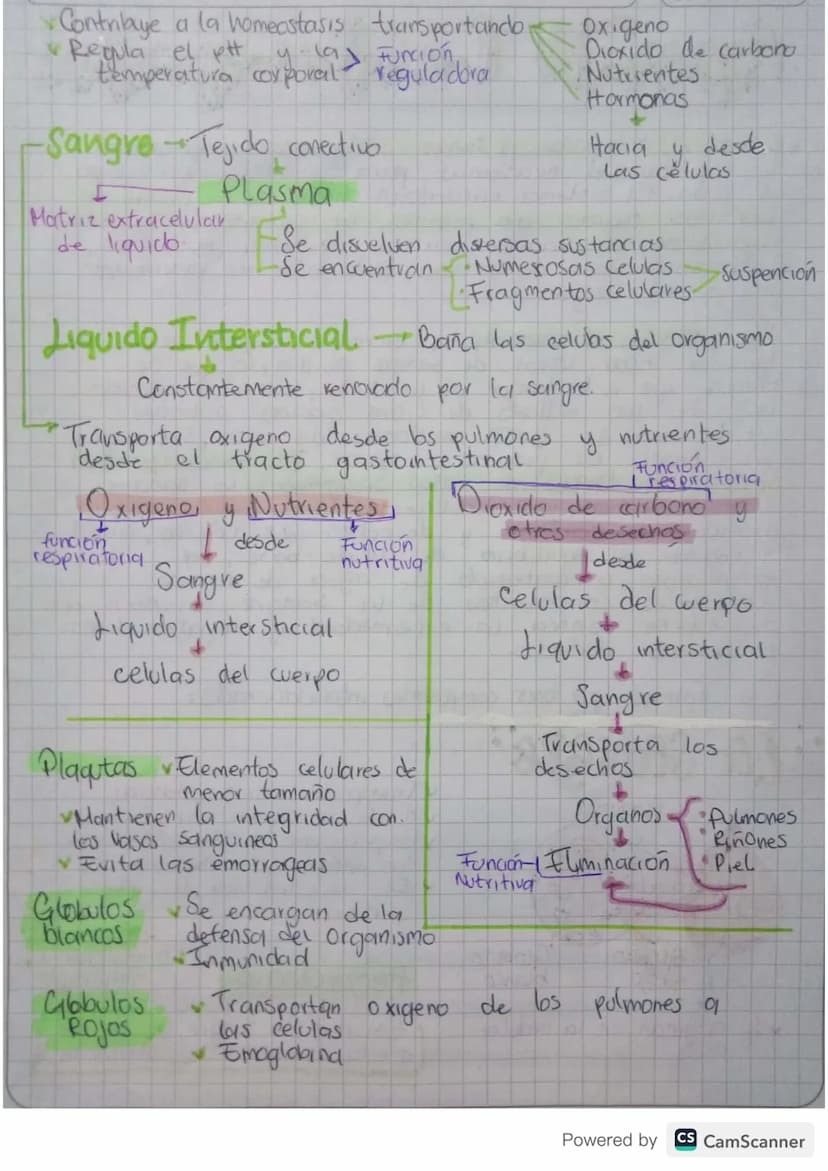 Contribuye a la homeostasis transportando
Oxigeno
Dioxido de carbono
Nutrientes
Hormonas
Hacia y desde
las células
Regula el pH y la
temperatura corporal
Función
reguladora
Sangre → Tejido conectivo
Plasma
Matriz extracelular
de liquido
Se disuelven diversas sustancias
Se encuentran
· Numerosas celulas
· Fragmentos celulares
suspención
Liquido Intersticial → Baña las celulas del organismo
Constantemente renovado por la sangre.
Transporta oxigeno desde los pulmones y nutrientes
desde el tracto gastointestinal
Oxigeno y Nutrientes
función
respiratoria
desde
Función
nutritiva
Sangre
Liquido intersticial
celulas del cuerpo
Función
respiratoria
Dioxido de carbono y
otros desechos
desde
Celulas del cuerpo
Liquido intersticial
Sangre
Transporta los
desechos
Organos
· Pulmones
· Riñones
· Piel
Función
Nutritiva
Eliminación
Plaqutas
Elementos celulares de
menor tamaño
Mantienen la integridad con.
los vasos sanguineos
Evita las emorrageas
Globulos
blancos
Se encargan de la
defensa del organismo
Inmunidad
Globulos
Rojos
Transportan oxigeno de los pulmones a
las celulas
Emoglobina
Powered by CS CamScanner